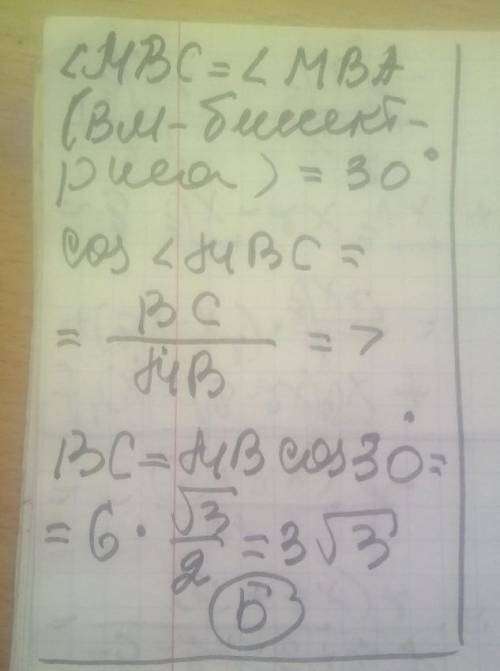 <MBC=<MBA
(BM-биссект-
риса)=30°
cos <MBC=
= BC/MB =>
BC=MB cos30°=
=6·√3/2=3√3
Б